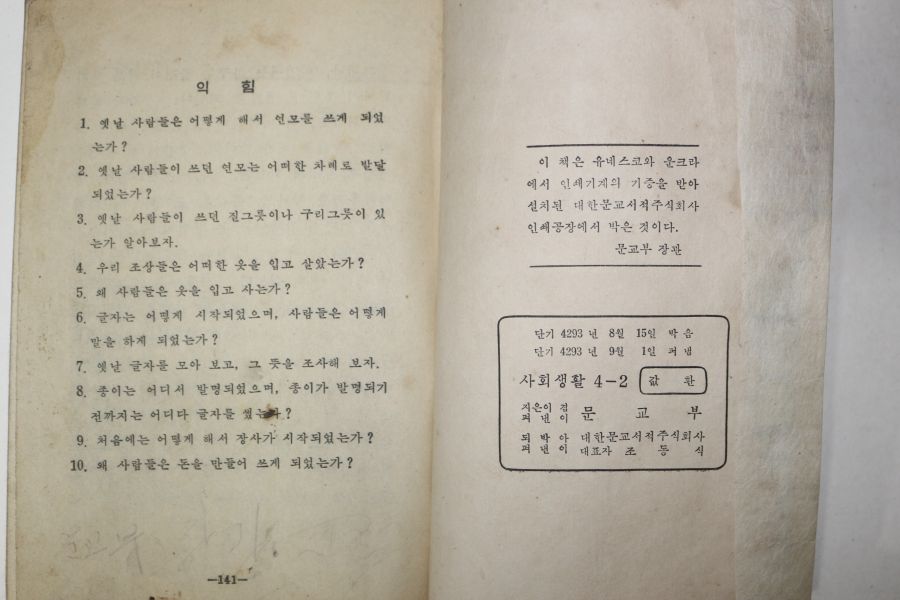 익 힘
1. 옛날 사람들은 어떻게 해서 연모를 쓰게 되었
는가?
2. 옛날 사람들이 쓰던 연모는 어떠한 차례로 발달
되었는가?
3. 옛날 사람들이 쓰던 질그릇이나 구리그릇이 있
는가 알아보자.
4. 우리 조상들은 어떠한 옷을 입고 살았는가?
5. 왜 사람들은 옷을 입고 사는가?
6. 글자는 어떻게 시작되었으며, 사람들은 어떻게
말을 하게 되었는가?
7. 옛날 글자를 모아 보고, 그 뜻을 조사해 보자.
8. 종이는 어디서 발명되었으며, 종이가 발명되기
전까지는 어디다 글자를 썼는가?
9. 처음에는 어떻게 해서 장사가 시작되었는가?
10. 왜 사람들은 돈을 만들어 쓰게 되었는가?
문교부
—141—
이 책은 유네스코와 운크라
에서 인쇄기계의 기증을 받아
설치된 대한문교서적주식회사
인쇄공장에서 박은 것이다.
문교부 장관
단기 4293 년 8월 15일 박음
단기 4293 년 9월 1일 펴냄
사회생활 4-2 값 환
지은이 겸
펴낸이 문교부
되박아
펴낸이 대한문교서적주식회사
대표자 조 등 식